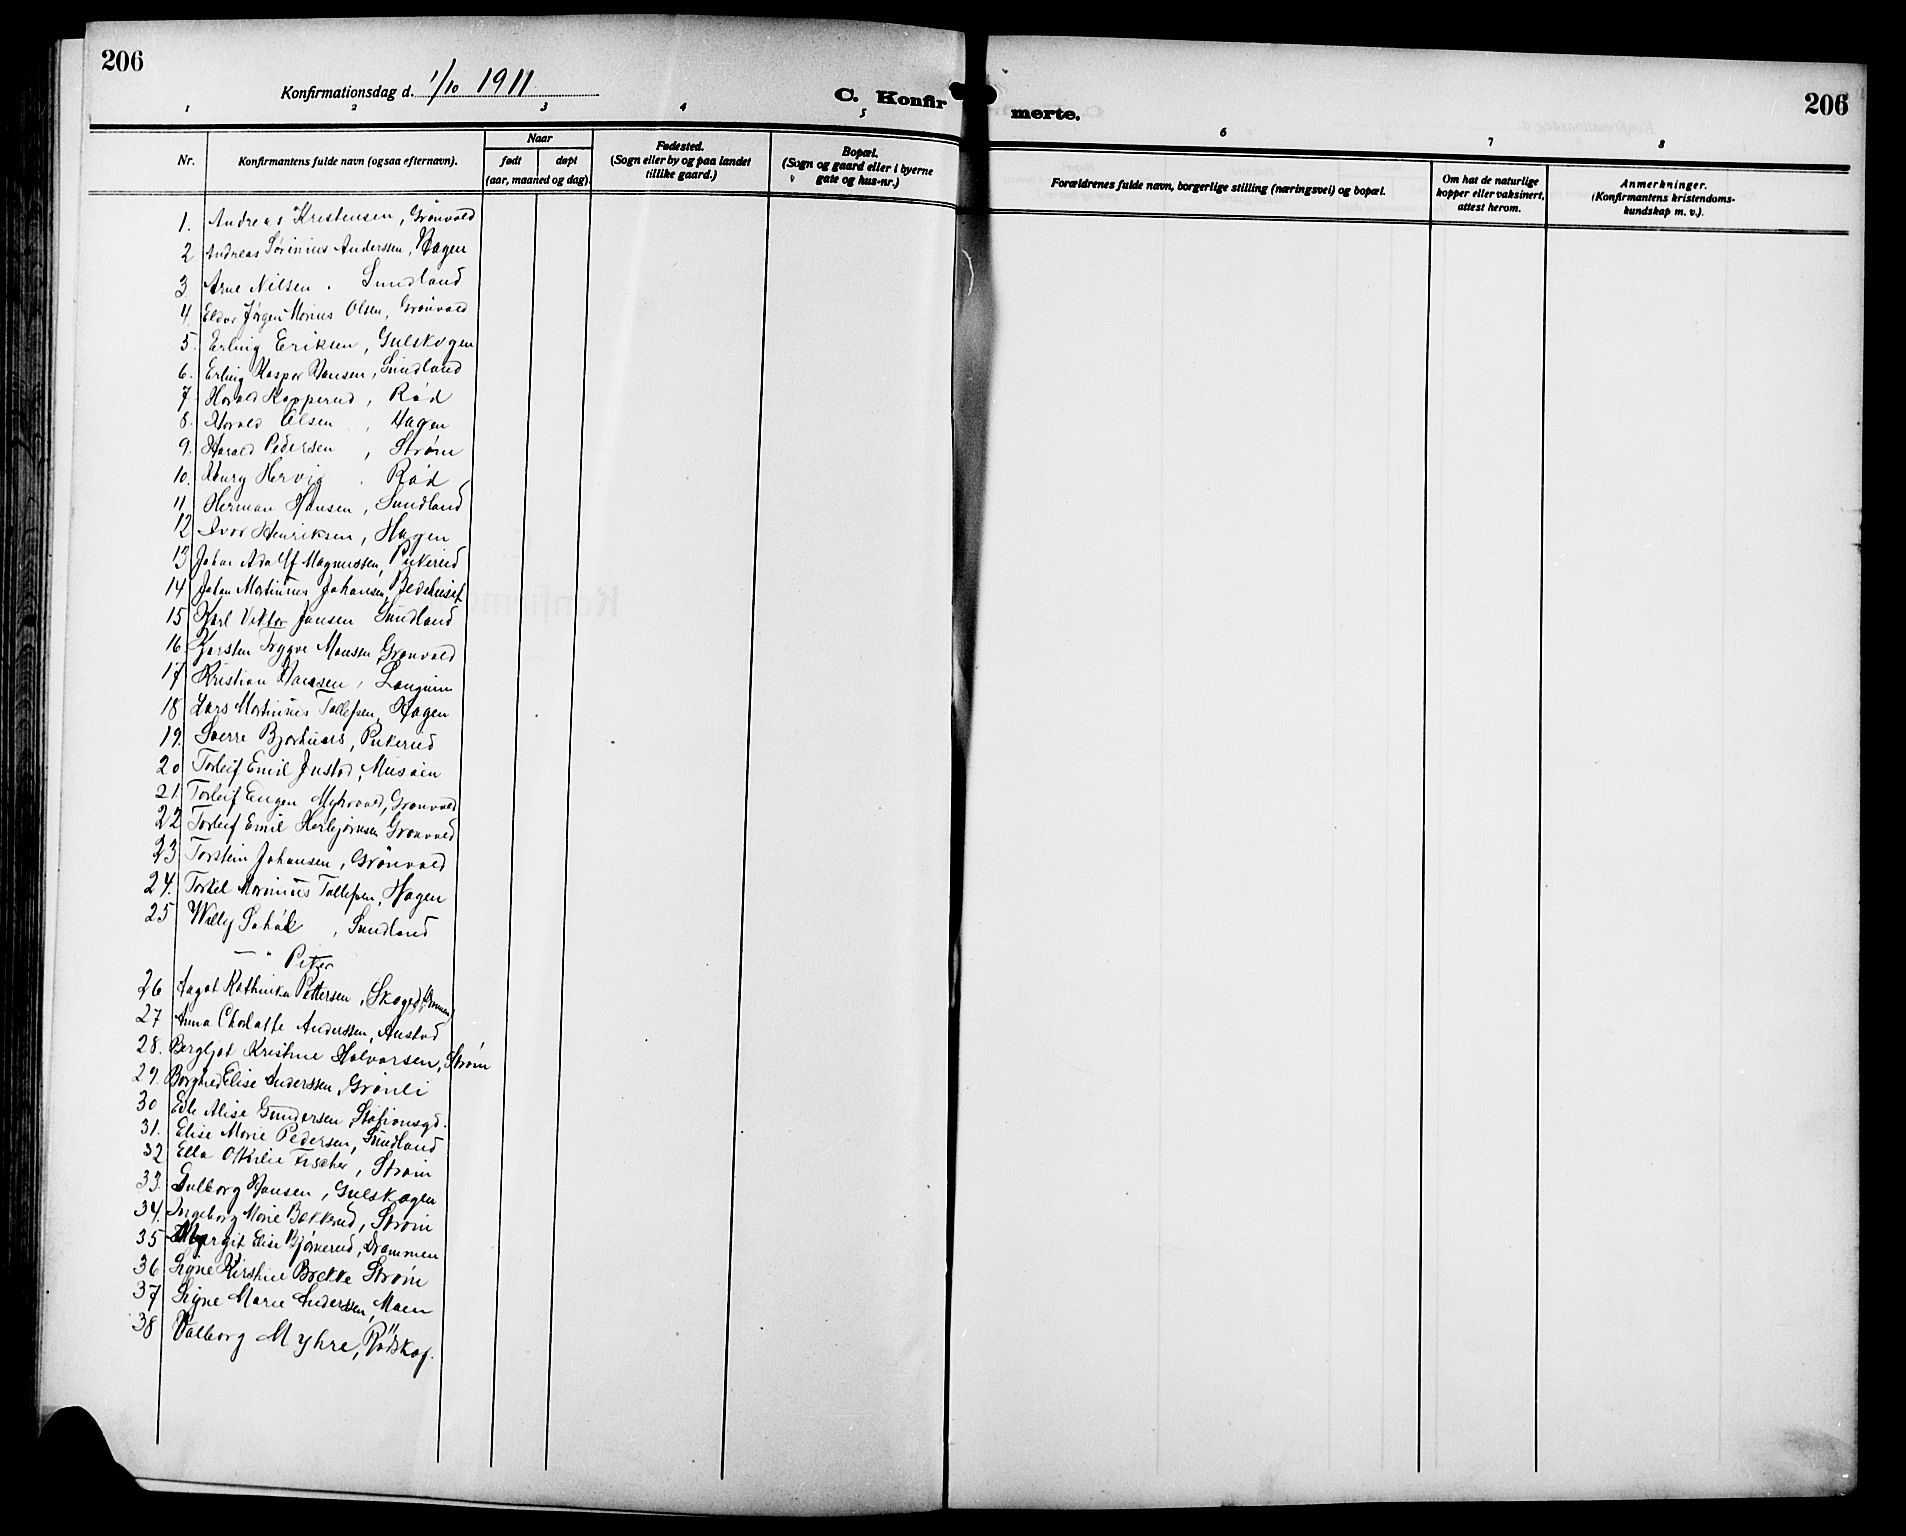 206
Konfirmationsdag d. 1/10 1911
C. Konfirmerte.
206
1 2 3 4 5 6 7 8
Nr.
Konfirmantens fulde navn (ogsaa efternavn).
Naar
født
døpt
(aar, maaned og dag).
Fødested.
(Sogn eller by og paa landet
tillike gaard.)
Bopæl.
(Sogn og gaard eller i byerne
gate og hus-nr.)
Forældrenes fulde navn, borgerlige stilling (næringsvei) og bopæl.
Om hat de naturlige
kopper eller vaksinert,
attest herom.
Anmerkninger.
(Konfirmantens kristendoms-
kundskap m. v.).
1. Andreas Kristensen, Grönvold
2 Andreas Sørinius Anderssen, Hagen
3. Arne Nilsen. Sundland
4. Jörgen Marius Olsen, Grönvold
5. Erling Eriksen, Gulskogen
6. Erling Kaspar Hansen, Sundland
7. Harald Kopperud, Rød
8. Harald Olsen, Hagen
9. Harald Pedersen, Strøm
10. Hervig. Rød
11. Herman Hansen, Sundland
12 Ivar Henriksen, Hagen
13 Johan Adolf Magnussen, Pukerud
14 Johan Martinius Johansen, Bedehuset
15 Karl Viktor Jansen Sundland
16. Karsten Trygve Monsen, Grönvold
17 Kristian Hansen,
18 Lars Martinius Tollefsen, Hagen
19. Sverre Bjorhuus, Pukerud
20 Torleif Emil
21. Torleif Eugen Myhrvold, Grönvold
22 Torleif Emil Herbjørnsen Grönvold
23. Torstein Johansen, Grönvold
24. Torkel Marinius Tollefsen, Hagen
25 Willy, Sundland
— " Peter
26 Aagot Kathinka Pettersen,
27 Anna Charlotte Anderssen, Austad
28. Bergljot Kristine Halvorsen, Strøm
29. Borghild Elise Anderssen, Grönli
30 Edle Alise Gundersen, Stationsgd.
31. Elise Marie Pedersen, Sundland
32 Ella Ottilie Fischer, Strøm
33. Gulborg Hansen, Gulskogen
34. Ingeborg Marie Bakkerud, Strøm
35 Margit Elise Bjørnerud, Drammen
36. Signe Kirstine Brekke Strøm
37 Signe Marie Anderssen, Moen
38 Valborg Myhre, Rödskog.